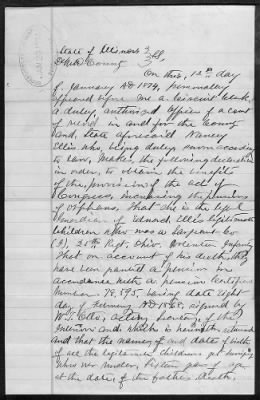 State of Illinois } SS.
County }
On this, 12th day
of January AD 1874, personally
appeared before me a Circuit Clerk
a duly authorized Officer of a court
of record in and for the County
and State aforesaid Nancy
Ellis who, being duly sworn according
to law, makes the following declaration
in order to obtain the benefits
of the provisions of the act of
Congress, increasing the pensions
of Orphans. That she is the legal
Guardian of Edward Ellis legitimate
children who was a Sergeant Co
25th Regt, Ohio. Volunteer Infantry
That on account of his death they
have been granted a pension in
accordance with to pension Certificate
number 79,195, bearing date
day of AD 1868, signed by
W. T. Otto, acting Secretary of the
Interior and which is herewith returned
and that the names and dates of birth
of all the legitimate children yet surviving
who were under sixteen years of age
at the date of the fathers death,